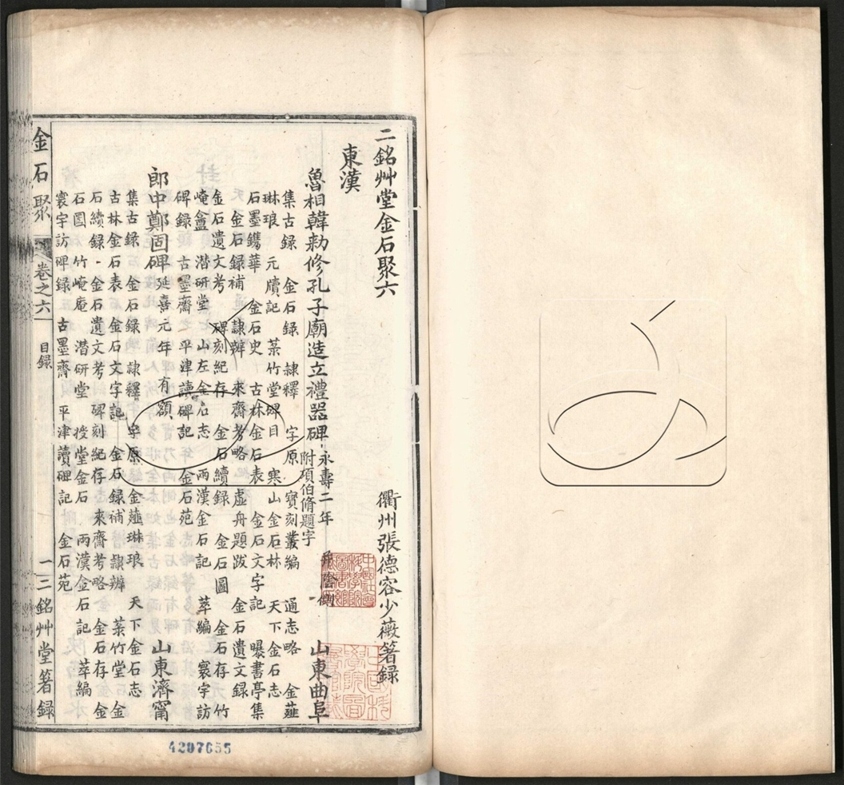 二銘艸堂金石聚六
衢州張德容少薇箸錄
東漢
魯相韓勑修孔子廟造立禮器碑 永壽二年 并陰側 附項伯脩題字 山東曲阜
集古錄 金石錄 隷釋 字原 寶刻叢編 通志略 金薤
琳琅 元牘記 菉竹堂碑目 寒山金石林 天下金石志
石墨鐫華 金石史 古林金石表 金石文字記 曝書亭集
金石錄補 隷辨 來齋考略 虛舟題跋 金石遺文錄
金石遺文考 碑刻紀存 金石續錄 金石圖 金石存 竹
崦盦 潛研堂 山左金石志 兩漢金石記 萃編 寰宇訪
碑錄 古墨齋 平津讀碑記 金石苑
郎中鄭固碑 延熹元年 有額 山東濟甯
集古錄 金石錄 隷釋 字原 金薤琳琅 天下金石志
古林金石表 金石文字記 金石錄補 隷辨 菉竹堂 金
石續錄 金石遺文考 碑刻紀存 來齋考略 金石存 金
石圖 竹崦庵 潛研堂 授堂金石 兩漢金石記 萃編
寰宇訪碑錄 古墨齋 平津讀碑記 金石苑
金石聚 卷之六 目錄 一 二銘艸堂箸錄
4207655